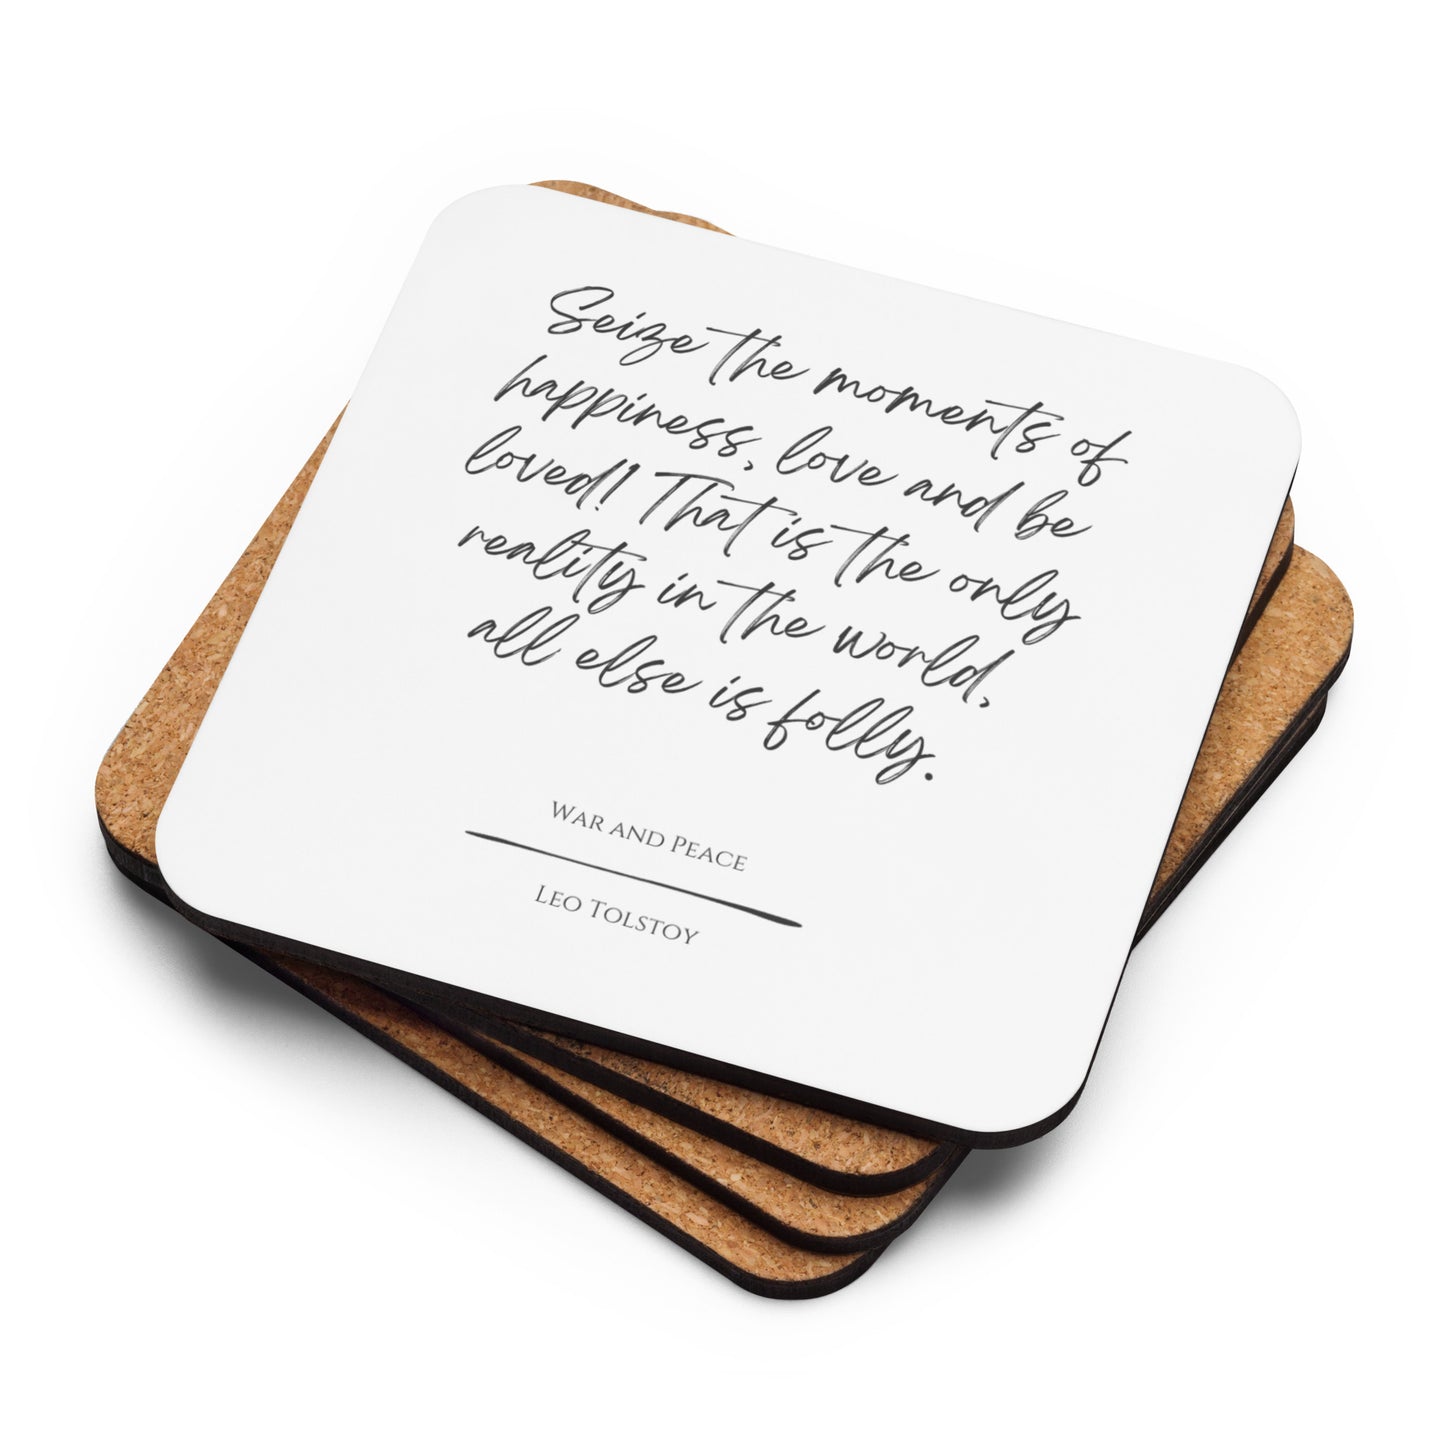 Seize the moments of
happiness, love and be
loved! That is the only
reality in the world,
all else is folly.
War and Peace
Leo Tolstoy